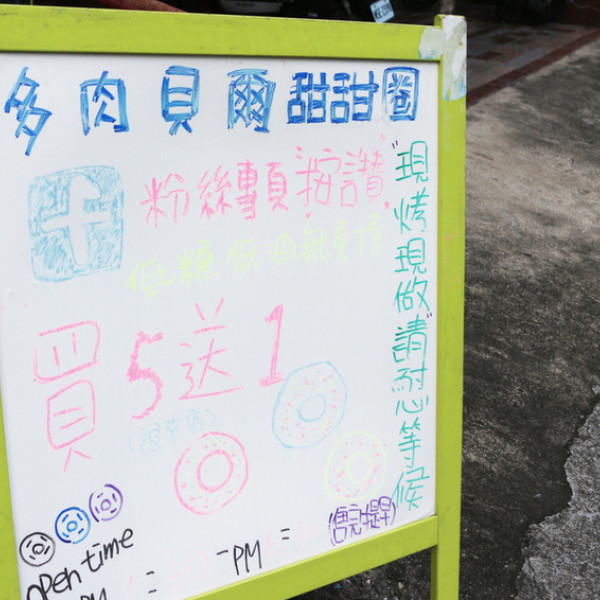 多肉貝爾甜甜圈
粉絲專頁"按讚"
低糖低油無負擔
買5送1
(限本店)
"現烤現做"請耐心等候
(售完提早)
open time
PM : - PM :